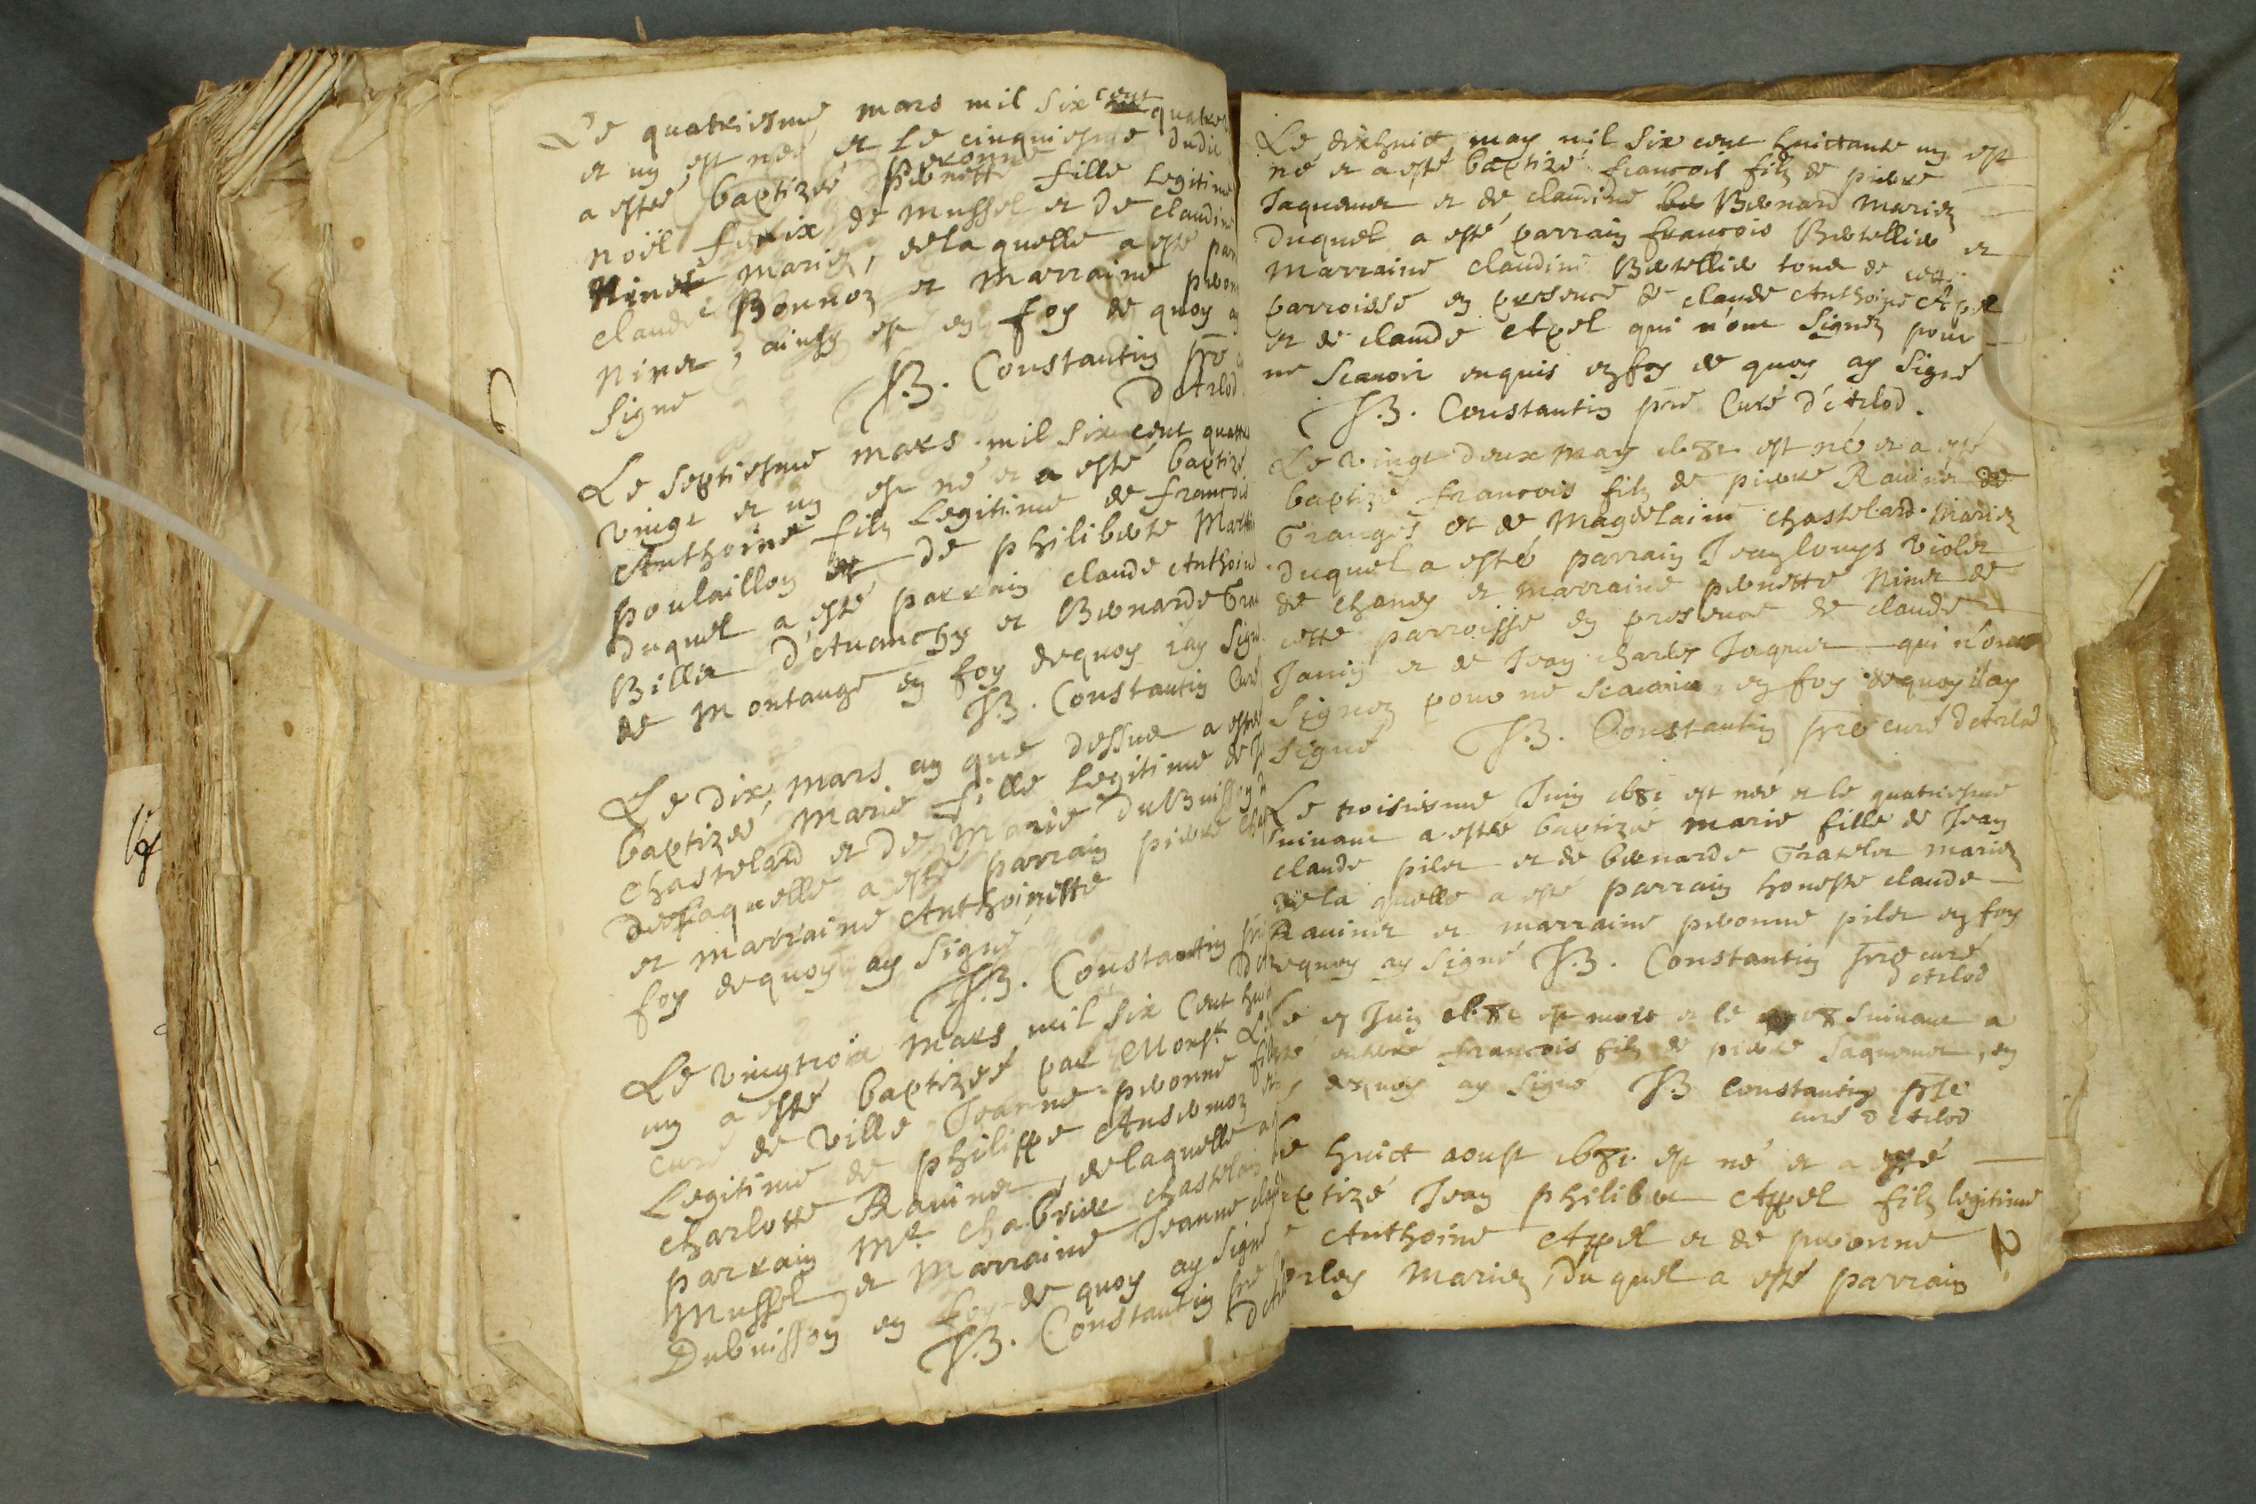 Le quatriesme mars mil six cent quatre
et un est neé et le cinquiesme dudic
peronne
a estéé baptizéé pernette fille Legitime
noël fenix de mussel et de claudine
Ninet mariez, de laquelle a esté par
claude Bonnoz et marraine peron
Ninet, ainsy est en foy de quoy a
signé J.B. Constantin pre
d'Arlod
Le septiesme mars mil six cent quatre
vingt et un est né et a esté baptizé
Anthoine filz Legitime de francois
poulaillon et de philiberte Mar
duquel a esté parrain claude Anthoine
Billet d'Auanchy et Bernarde Tra
de montange en foy de quoy iay signé
J.B. Constantin Curé
Le dix mars an que dessue a esté
baptizéé Marie fille legitime de J
chastelard et de Marie duBuisson
de laquelle a esté parrain pierre cha
et marraine Anthoinette
foy de quoy ay signé
J.B. Constantin pre
Le vingtroix mars mil six Cent huic
un a esté baptizéé par Monsr. L
curé de ville Jeanne peronne fil
Legitime de philippe Ansermoz
charlotte Rauinet, de laquelle a
parrain Mr. chabrier chastelain
mussel et marraine Jeanne cla
Dubuisson en foy de quoy ay signé
J.B. Constantin pre
d'Arlod
Le dixhuict may mil six cent huictante un est
né et a esté baptizé francois filz de pierre
Jaquemet et de claudine be Bernard mariez
duquel a esté parrain francois Bertellier et
marraine claudine Bertellier tous de cette
parroisse en presence de claude Anthoine Apel
et de claude Apel qui n'ont signéz pour
ne scauoir enquis en foy de quoy ay signé
J.B. Constantin pre Curé d'Arlod.
Le vingt deux may 1681 est né et a esté
baptizé francois filz de pierre Rauinet de
Tranges et de Magdelaine chastelard mariez
duquel a esté parrain Jean louys violet
de chaney et marraine pernette Ninet de
cette parroisse en presence de claude
Janin et de Jean charles Jaquet qui n'ont
signez pour ne scauoir en foy de quoy i'ay
signé J.B. Constantin pre curé d'Arlod
Le troisiesme Juin 1681 est néé et le quatriesme
suiuant a estéé baptizéé marie fille de Jean
claude pilet et de bernarde Trauelet mariez
de la quelle a esté parrain honeste claude
Rauinet et marraine peronne pilet en foy
dequoy ay signé J.B. Constantin pre curé
d'Arlod
Le en Juin 1681 est mort et le suiuant a
esté enterré francois filz de pierre Jaquemet, en
foy dequoy ay signé J.B. Constantin pre
curé d'Arlod
Le huict aoust 1681 est né et a esté
baptizé Jean philibert Appel filz legitime
Anthoine Appel et de peronne
mariez, du quel a esté parrain